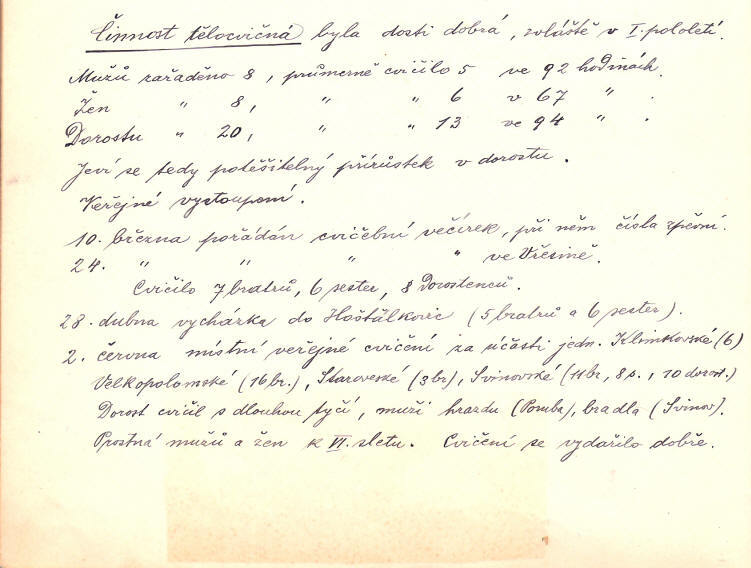 Činnost tělocvičná byla dosti dobrá, zvláště v I. pololetí.
Mužů zařaděno 8, průmerně cvičilo 5 ve 92 hodinách.
Žen " 8, " " 6 v 67 " .
Dorostu " 20, " " 13 ve 94 " .
Jeví se tedy potěšitelný přírůstek v dorostu.
Veřejné vystoupení.
10. března pořádán cvičební večírek, při něm čísla zpěvní.
24. " " " " ve Vřesině.
Cvičilo 7 bratrů, 6 sester, 8 Dorostenců.
28. dubna vycházka do Hošťálkovic (5 bratrů a 6 sester).
2. června místní veřejné cvičení za účasti jedn. Klimkovské (6)
Velkopolomské (16 br.), Staroveské (3 br), Svinovské (11 br, 8 s., 10 dorost.)
Dorost cvičil s dlouhou tyčí, muži hrazdu (Poruba), bradla (Svinov).
Prostná mužů a žen k VI. sletu. Cvičení se vydařilo dobře.